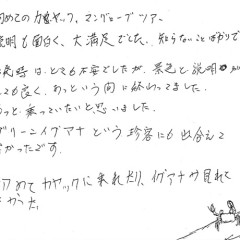 初めてのカヤック、マングローブツアー。
説明も面白く、大満足でした。知らないことばかりで
は、とても不安でしたが、景色と説明が
ても良く、あっという間に終わってました。
っと乗っていたいと思いました。
グリーンイグアナという珍客にも出会えて
かったです。
めてカヤックに乗れたり、イグアナが見れて
かった